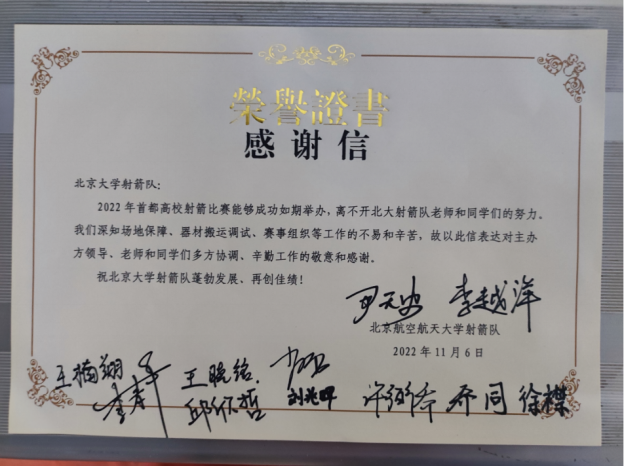 榮譽證書
感谢信
北京大学射箭队：
2022年首都高校射箭比赛能够成功如期举办，离不开北大射箭队老师和同学们的努力。
我们深知场地保障、器材搬运调试、赛事组织等工作的不易和辛苦，故以此信表达对主办
方领导、老师和同学们多方协调、辛勤工作的敬意和感谢。
祝北京大学射箭队蓬勃发展、再创佳绩！
李越洋
北京航空航天大学射箭队
2022年11月6日
王楠翔
王晓铭
刘兆晖
乔同